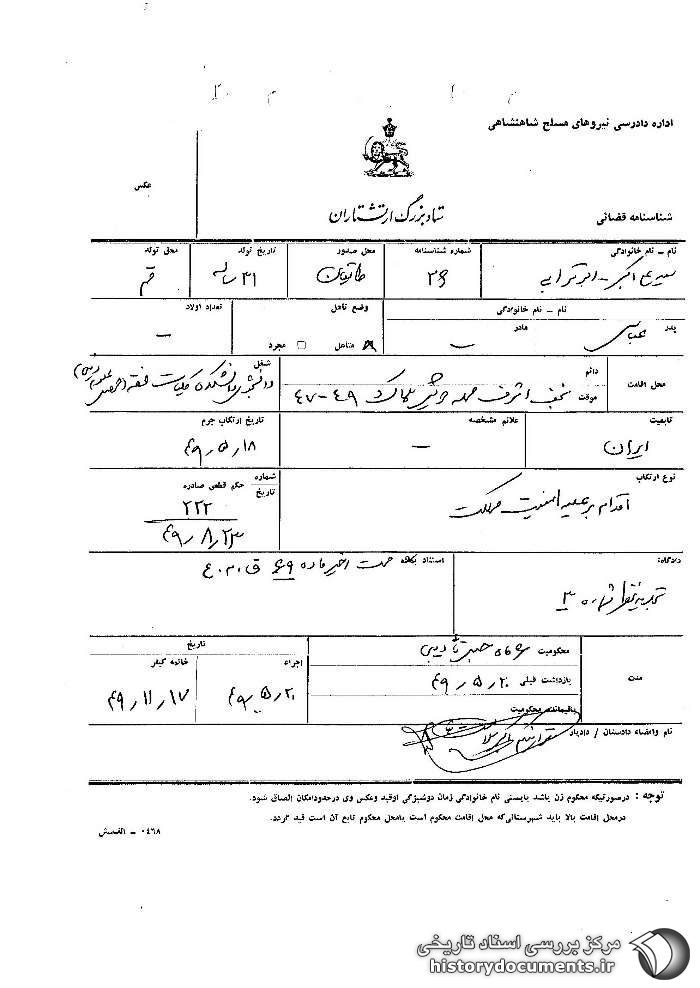 اداره دادرسی نیروهای مسلح شاهنشاهی
عکس
ستاد بزرگ ارتشتاران
شناسنامه قضائی
نام ـ نام خانوادگی
سید علی اکبر ـ ابوترابی
شماره شناسنامه
۲۶
محل صدور
تاریخ تولد
۳۱ ساله
محل تولد
قم
نام ـ نام خانوادگی
پدر
عباس
مادر
ــ
وضع تاهل
متاهل
مجرد
تعداد اولاد
ــ
محل اقامت
دائم
موقت
نجف اشرف محله پلاک ۴۹-۴۷
شغل
دانشجوی دانشکده فقه
تابعیت
ایران
علائم مشخصه
ــ
تاریخ ارتکاب جرم
۴۹٫۵٫۱۸
نوع ارتکاب
اقدام بر علیه امنیت مملکت
شماره
تاریخ
حکم قطعی صادره
۲۲۲
۴۹٫۸٫۲۳
دادگاه:
تجدیدنظر شماره ۳
استناد بکلافه
قسمت اخیر ماده ۶۹ ق.م.ع
مدت
محکومیت ۶ ماه حبس تأدیبی
بازداشت قبلی ۴۹٫۵٫۲۰
باقیمانده محکومیت
تاریخ
اجراء
۴۹٫۵٫۲۰
خاتمه کیفر
۴۹٫۱۱٫۱۷
نام وامضاء دادستان / دادیار
توجه : درصورتیکه محکوم زن باشد بایستی نام خانوادگی زمان دوشیزگی اوقید وعکس وی درحدودامکان الصاق شود.
درمحل اقامت بالا باید شهرستانی‌که محل اقامت محکوم است یامحل محکوم تابع آن است قید گردد.
۰۴۶۸ ـ الف‌مش
مرکز بررسی اسناد تاریخی
historydocuments.ir